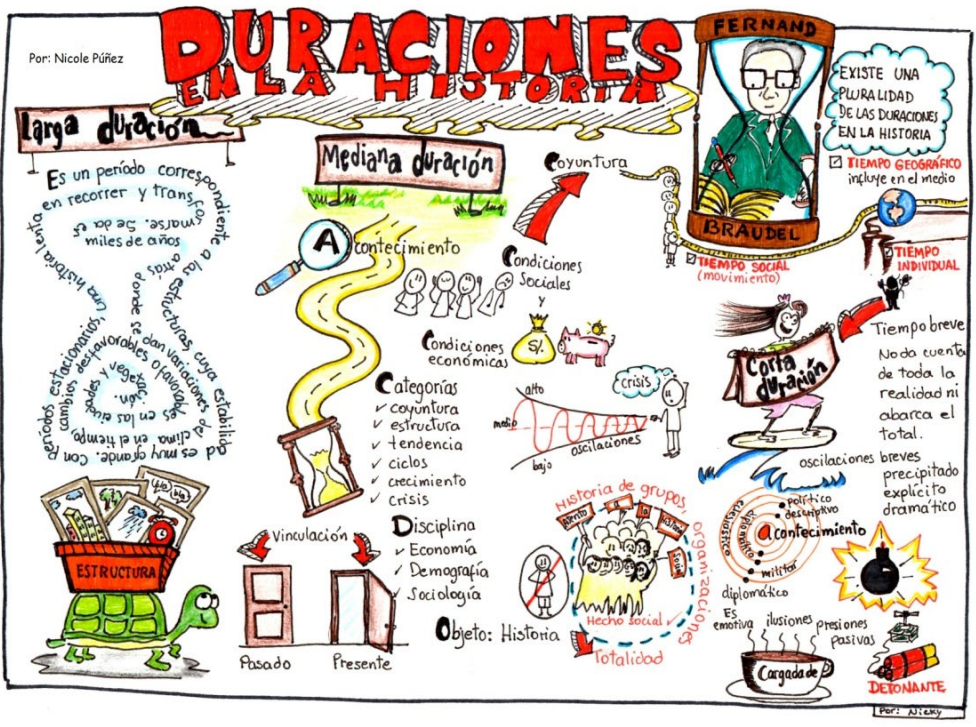 Por: Nicole Púñez
DURACIONES
EN LA HISTORIA
FERNAND
BRAUDEL
EXISTE UNA
PLURALIDAD
DE LAS DURACIONES
EN LA HISTORIA
TIEMPO GEOGRÁFICO
influye en el medio
TIEMPO SOCIAL
(movimiento)
TIEMPO
INDIVIDUAL
Larga duración
Es un período correspondiente a las estructuras, cuya estabilidad es muy grande. Con períodos estacionarios, una historia lenta en recorrer y transformarse. Se da
miles de años
atrás donde se dan variaciones del clima en el tiempo, cambios desfavorables o favorables en las ciudades y vegetación.
bla
bla
ESTRUCTURA
Mediana duración
Acontecimiento
Coyuntura
Condiciones
Sociales
y
Condiciones
económicas
S/.
Categorías
✓ coyuntura
✓ estructura
✓ tendencia
✓ ciclos
✓ crecimiento
✓ crisis
alto
medio
bajo
oscilaciones
crisis
Disciplina
✓ Economía
✓ Demografía
✓ Sociología
Vinculación
Pasado
Presente
Objeto: Historia
Historia de grupos, organizaciones
Aliento
a
la
historia
Social
Hecho social ✓
Totalidad
Corta
duración
Tiempo breve
No da cuenta
de toda la
realidad ni
abarca el
total.
oscilaciones breves
precipitado
explícito
dramático
político
descriptivo
acontecimiento
militar
diplomático
Es
emotiva
ilusiones
presiones
pasivas
Cargada de
DETONANTE
Por: Nicky